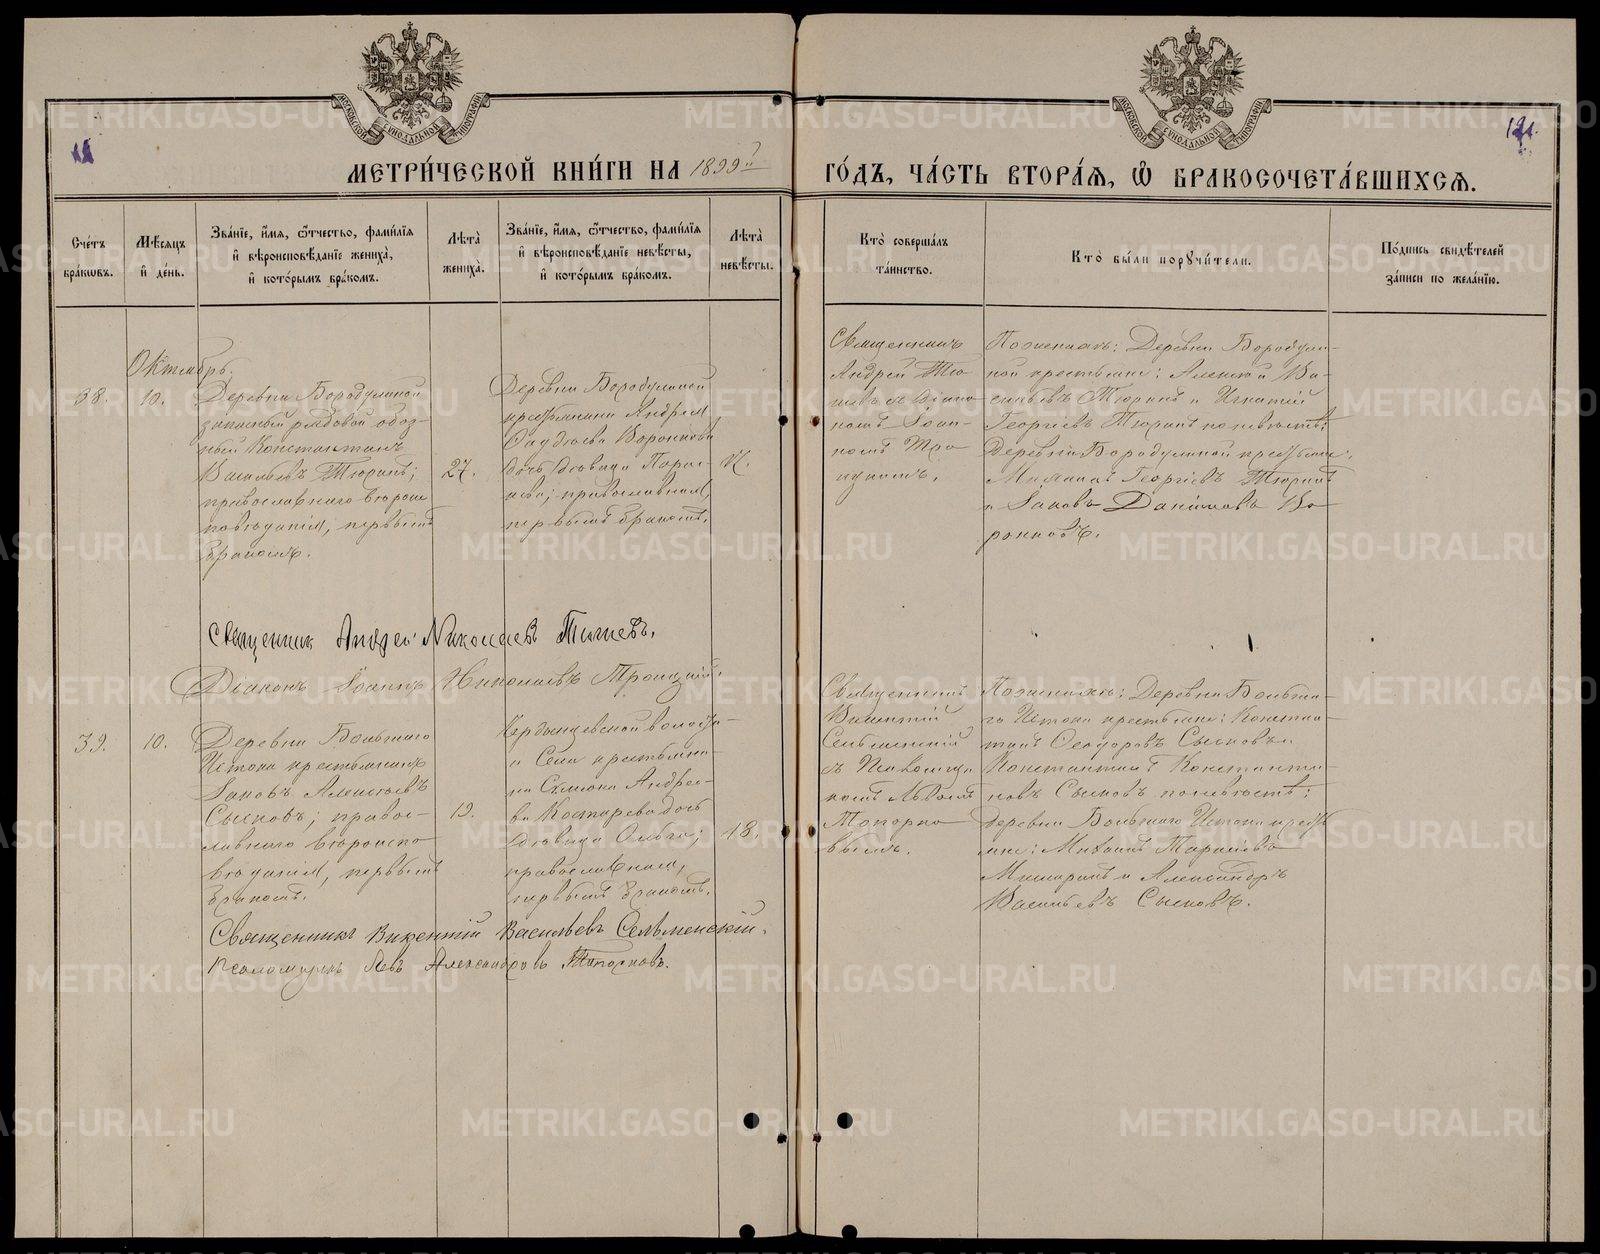 МОСКОВСКОЙ СѴНОДАЛЬНОЙ ТИПОГРАФІИ
МОСКОВСКОЙ СѴНОДАЛЬНОЙ ТИПОГРАФІИ
МЕТРИ́ЧЕСКОЙ КНИ́ГИ НА 1899й
ГО́ДЪ, ЧА́СТЬ ВТОРА́Ѧ, Ѽ БРАКОСОЧЕТА́ВШИХСѦ.
Сче́тъ бра́кωвъ.
Мѣ́сяцъ и҆ де́нь.
Зва́нїе, и҆́мя, ѻ҆́тчество, фами́лїя
и҆ вѣроисповѣ́данїе жениха̀,
и҆ кото́рымъ бра́комъ.
Лѣ́та̀ жениха̀.
Зва́нїе, и҆́мя, ѻ҆́тчество, фами́лїя
и҆ вѣроисповѣ́данїе невѣ́сты,
и҆ кото́рымъ бра́комъ.
Лѣ́та̀ невѣ́сты.
Кто̀ соверша́лъ
та́инство.
Кто̀ бы́ли порꙋчи́тели.
По́дпись свидѣ́телей
за́писи по жела́нїю.
Октябрь.
38.
10.
Деревни Бородулиной
запасный рядовой обоз-
ный Константинъ
Васильевъ Тюринъ;
православнаго вѣроис
повѣданія, первымъ
бракомъ.
27.
Деревни Бородулиной
крестьянина Андрея
Воронкова
дочь дѣвица Парас-
кева; православная,
первымъ бракомъ.
Священникъ
Андрей
съ Діако
номъ Іоан-
номъ Тро
ицкимъ.
По женихѣ: Деревни Бородули-
ной крестьяне: Алексѣй Ва-
сильевъ Тюринъ и Игнатій
Георгіевъ Тюринъ по невѣстѣ:
Деревни Бородулиной крестьяне:
Михаилъ Георгіевъ Тюринъ
и Іаковъ Даніиловъ Во
ронковъ.
Священник Андрей Николаевъ
Діаконъ Іоаннъ Николаевъ Троицкій.
39.
10.
Деревни Большаго
Истока крестьянинъ
Іаковъ Алексѣевъ
Сысковъ; правос-
лавнаго вѣроиспо
вѣданія, первымъ
бракомъ.
19.
волости
и Села крестьяни-
на Симеона Андрее-
ва Костарева дочь
дѣвица Ольга;
православная,
первымъ бракомъ.
18.
Священникъ
Викентій
Сельменскій
съ Псаломщи
комъ Львомъ
Топорко
вымъ.
По женихѣ: Деревни Больша-
го Истока крестьяне: Конста-
тинъ Ѳеодоровъ Сысковъ и
Константинъ Константи-
новъ Сысковъ по невѣстѣ:
деревни Большаго Истока кресть
яне: Михаилъ
и Александръ
Васильевъ Сысковъ.
Священникъ Викентій Васильевъ Сельменскій.
Псаломщикъ Левъ Александровъ Топорковъ.
METRIKI.GASO-URAL.RU